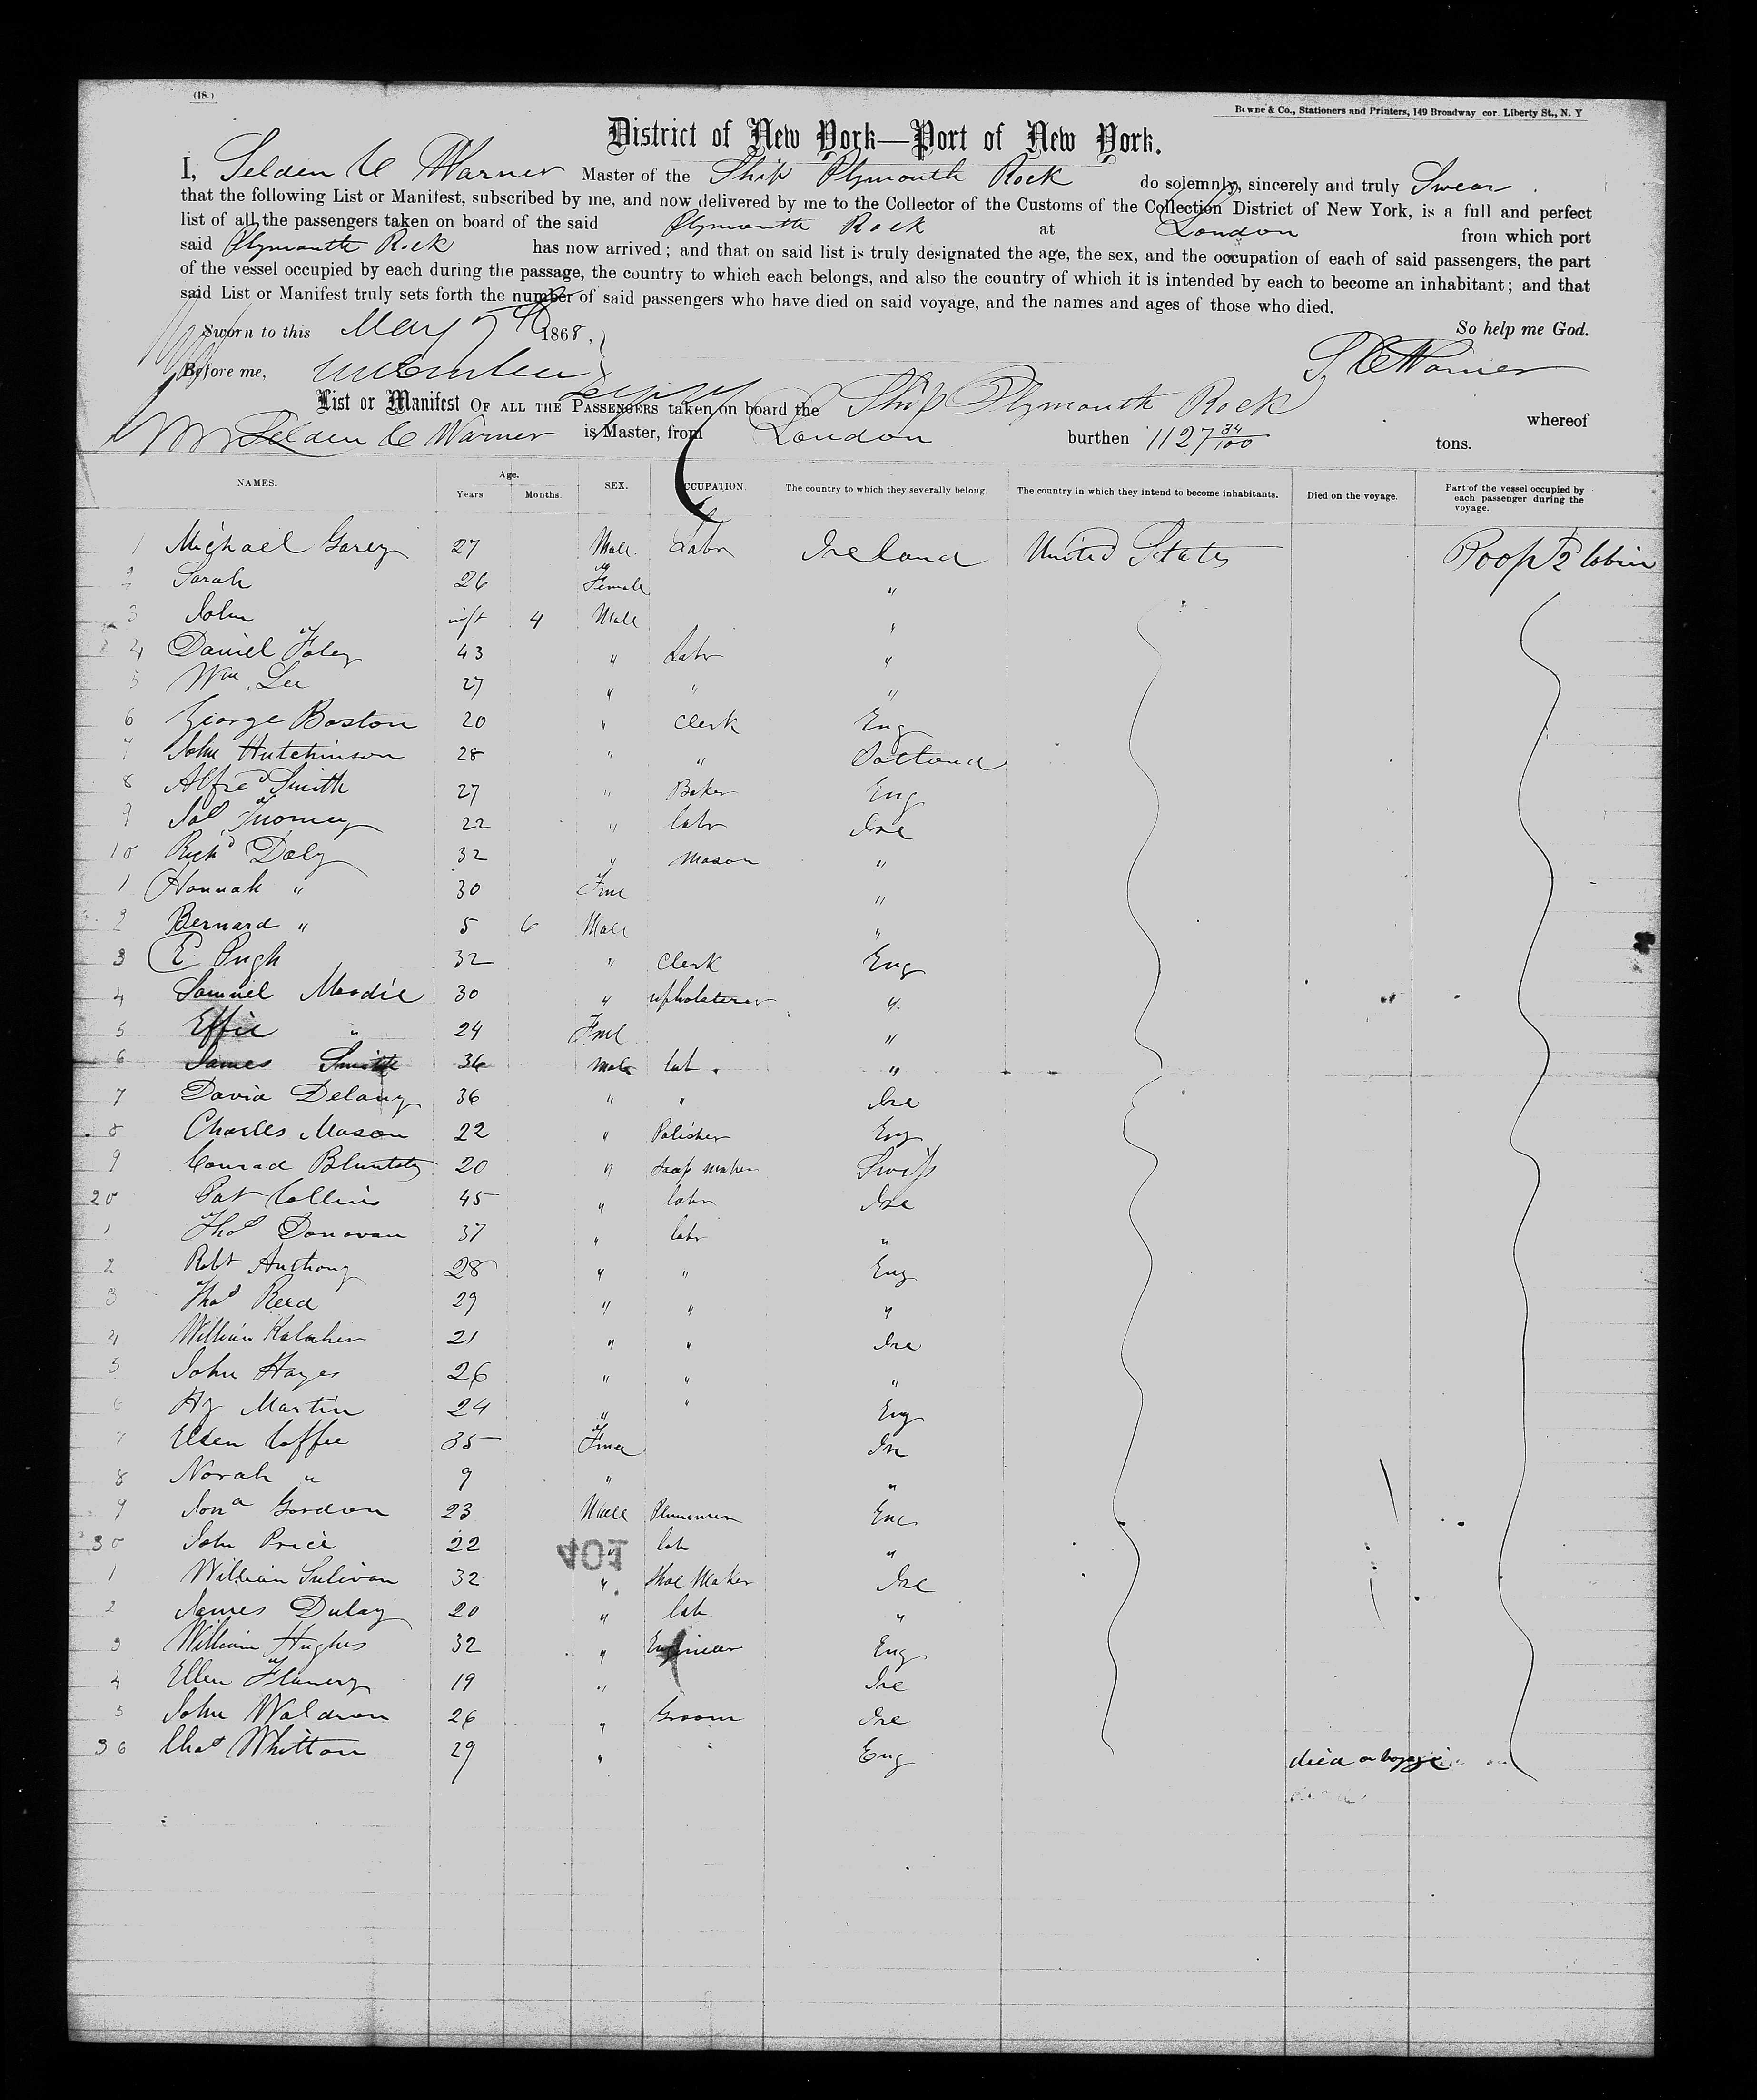 (18.)
Bowne & Co., Stationers and Printers, 149 Broadway cor. Liberty St., N. Y
District of New York—Port of New York.
I, Selden C Warner Master of the Ship Plymouth Rock do solemnly, sincerely and truly Swear
that the following List or Manifest, subscribed by me, and now delivered by me to the Collector of the Customs of the Collection District of New York, is a full and perfect
list of all the passengers taken on board of the said Plymouth Rock at London from which port
said Plymouth Rock has now arrived; and that on said list is truly designated the age, the sex, and the occupation of each of said passengers, the part
of the vessel occupied by each during the passage, the country to which each belongs, and also the country of which it is intended by each to become an inhabitant; and that
said List or Manifest truly sets forth the number of said passengers who have died on said voyage, and the names and ages of those who died.
Sworn to this May 7th 1868, So help me God.
Before me, S C Warner
List or Manifest OF ALL THE PASSENGERS taken on board the Ship Plymouth Rock whereof
Selden C Warner is Master, from London burthen 1127 34/100 tons.
NAMES. Age. Years Months. SEX. OCCUPATION The country to which they severally belong. The country in which they intend to become inhabitants. Died on the voyage. Part of the vessel occupied by each passenger during the voyage.
1 Michael Garey 27 Male Labr Ireland United States Poop & 2 Cabin
2 Sarah 26 Female "
3 John inft 4 Male "
4 Daniel Foley 43 " Labr "
5 Wm Lee 27 " " "
6 George Boston 20 " Clerk Eng
7 John Hutchinson 28 " " Scotland
8 Alfred Smith 27 " Baker Eng
9 Twomey 22 " labr Ire
10 Richd Daly 32 " Mason "
1 Hannah " 30 Fme "
2 Bernard " 5 6 Male "
3 E Pugh 32 " Clerk Eng
4 Samuel Moodie 30 " upholsterer "
5 Effie " 24 Fml "
6 James Smith 36 Male lab "
7 David Delany 36 " " Ire
8 Charles Mason 22 " Polisher Eng
9 Conrad 20 " Soap maker Swiss
20 Pat Collins 45 " labr Ire
1 Thos Donovan 37 " labr "
2 Robt Anthony 28 " " Eng
3 Thos Reed 29 " " "
4 William Kelaher 21 " " Ire
5 John Hayes 26 " " "
6 Hy Martin 24 " " Eng
7 Ellen Coffee 35 Fme Ire
8 Norah " 9 " "
9 Jona Gordon 23 Male Plummer Eng
30 John Price 22 " lab "
401
1 William Sulivan 32 " Shoe Maker Ire
2 James Dulay 20 " lab "
3 William Hughes 32 " Engineer Eng
4 Ellen Flanery 19 " Ire
5 John Waldron 26 " Groom Ire
36 Chas Whitton 29 " Eng died on voyage